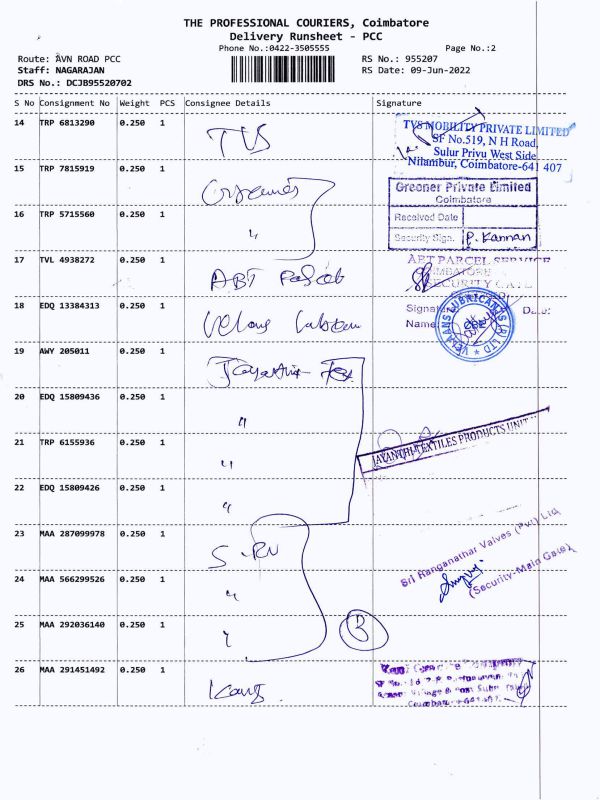 THE PROFESSIONAL COURIERS, Coimbatore
Delivery Runsheet - PCC
Phone No.:0422-3505555 Page No.:2
Route: AVN ROAD PCC RS No.: 955207
Staff: NAGARAJAN RS Date: 09-Jun-2022
DRS No.: DCJB95520702
S No Consignment No Weight PCS Consignee Details Signature
14 TRP 6813290 0.250 1 TVS
TVS MOBILITY PRIVATE LIMITED
SF No.519, N H Road,
Sulur Privu West Side
Nilambur, Coimbatore-641 407
15 TRP 7815919 0.250 1
Greener Private Limited
Coimbatore
16 TRP 5715560 0.250 1 "
Received Date
Security Sign. P. Kannan
17 TVL 4938272 0.250 1 ABT Parcel
ABT PARCEL SERVICE
COIMBATORE
SECURITY GATE
18 EDQ 13384313 0.250 1
Signat Date:
Name:
VELMANS LUBRICANTS (P) LTD
CBE
19 AWY 205011 0.250 1 Jayanthi Tex
20 EDQ 15809436 0.250 1 "
21 TRP 6155936 0.250 1 "
JAYANTHI TEXTILES PRODUCTS UNIT
22 EDQ 15809426 0.250 1 "
23 MAA 287099978 0.250 1
Sri Ranganathar Valves (Pvt) Ltd
24 MAA 566299526 0.250 1 "
(Security-Main Gate)
25 MAA 292036140 0.250 1 "
3
26 MAA 291451492 0.250 1